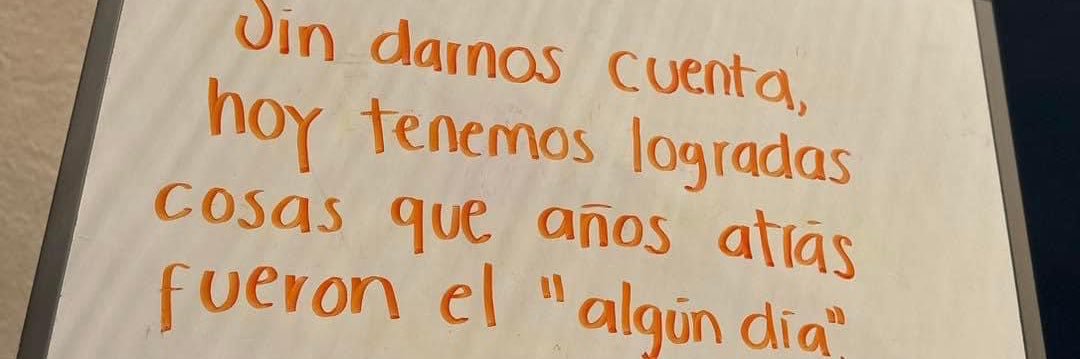 Sin darnos cuenta,
hoy tenemos logradas
cosas que años atrás
fueron el "algún día".